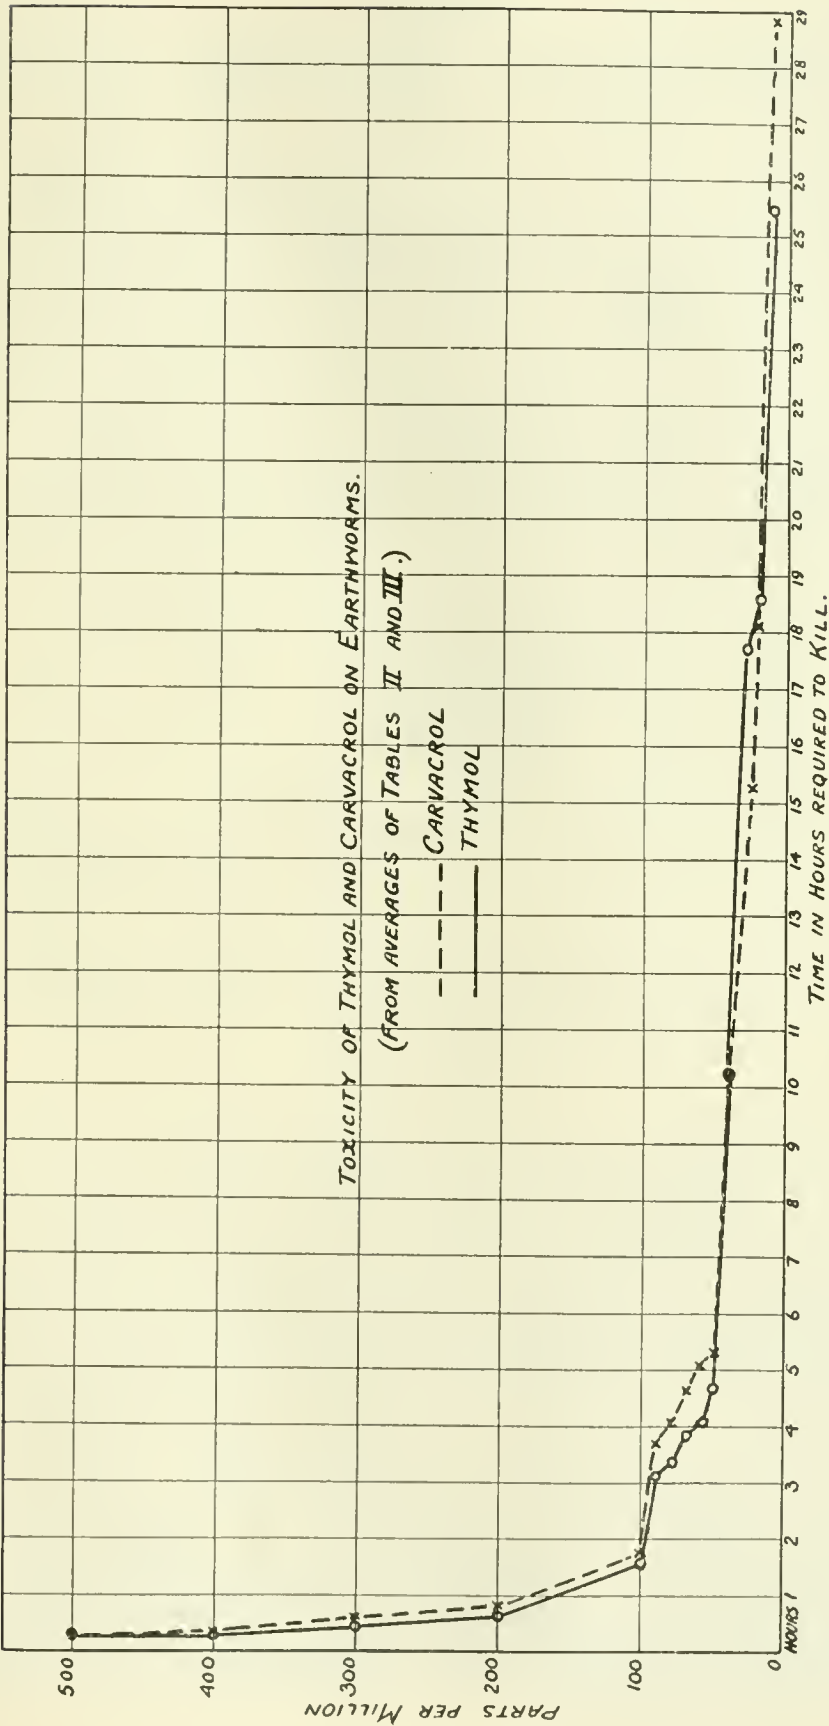 TOXICITY OF THYMOL AND CARVACROL ON EARTHWORMS.
(FROM AVERAGES OF TABLES II AND III.)
CARVACROL
THYMOL
PARTS PER MILLION
500
400
300
200
100
0
HOURS 1 2 3 4 5 6 7 8 9 10 11 12 13 14 15 16 17 18 19 20 21 22 23 24 25 26 27 28 29
TIME IN HOURS REQUIRED TO KILL.